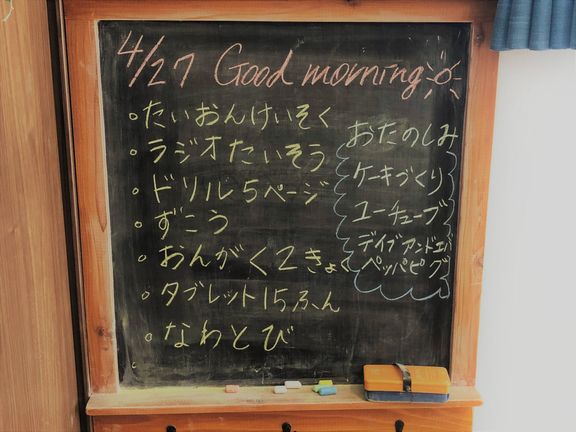 4/27 Good morning
○たいおんけいそく
○ラジオたいそう
○ドリル5ページ
○ずこう
○おんがく2きょく
○タブレット15ふん
○なわとび
○
おたのしみ
ケーキづくり
ユーチューブ
デイブアンドエバ
ペッパピグ